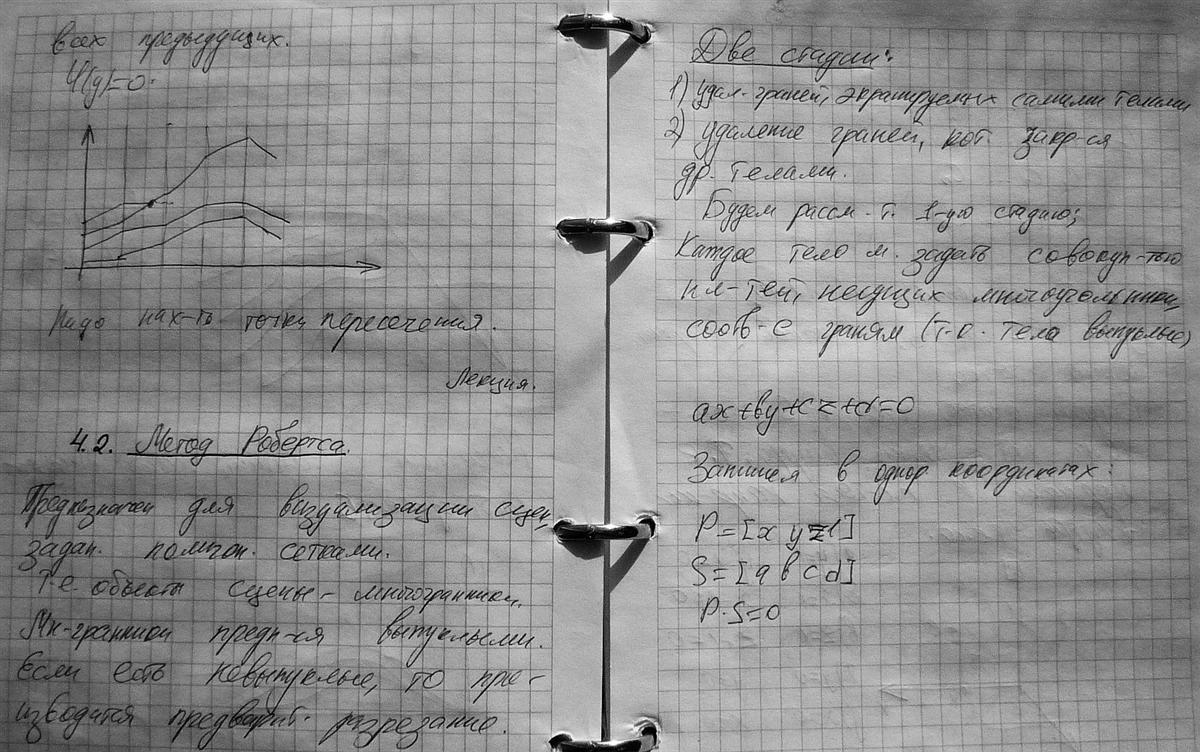 всех предыдущих.
Ψ(y)=0.
Надо нах-ть точки пересечения.
Лекция.
4.2. Метод Робертса.
Предназначен для визуализации сцен,
задан. полигон. сетками.
Т.е. объекты сцены - многогранники.
Мн-гранники предп-ся выпуклыми.
Если есть невыпуклые, то прои-
изводится предварит. разрезание.
Две стадии:
1) удал. граней, экранируемых самими телами,
2) удаление граней, кот закр-ся
др. телами.
Будем рассм-т. 1-ую стадию;
Каждое тело м. задать совокуп-тью
пл-тей, несущих многоугольники,
соотв-е граням (т.к. тела выпуклые)
ax+by+cz+d=0
Запишем в однор координатах:
P=[x y z 1]
S=[a b c d]
P·S=0